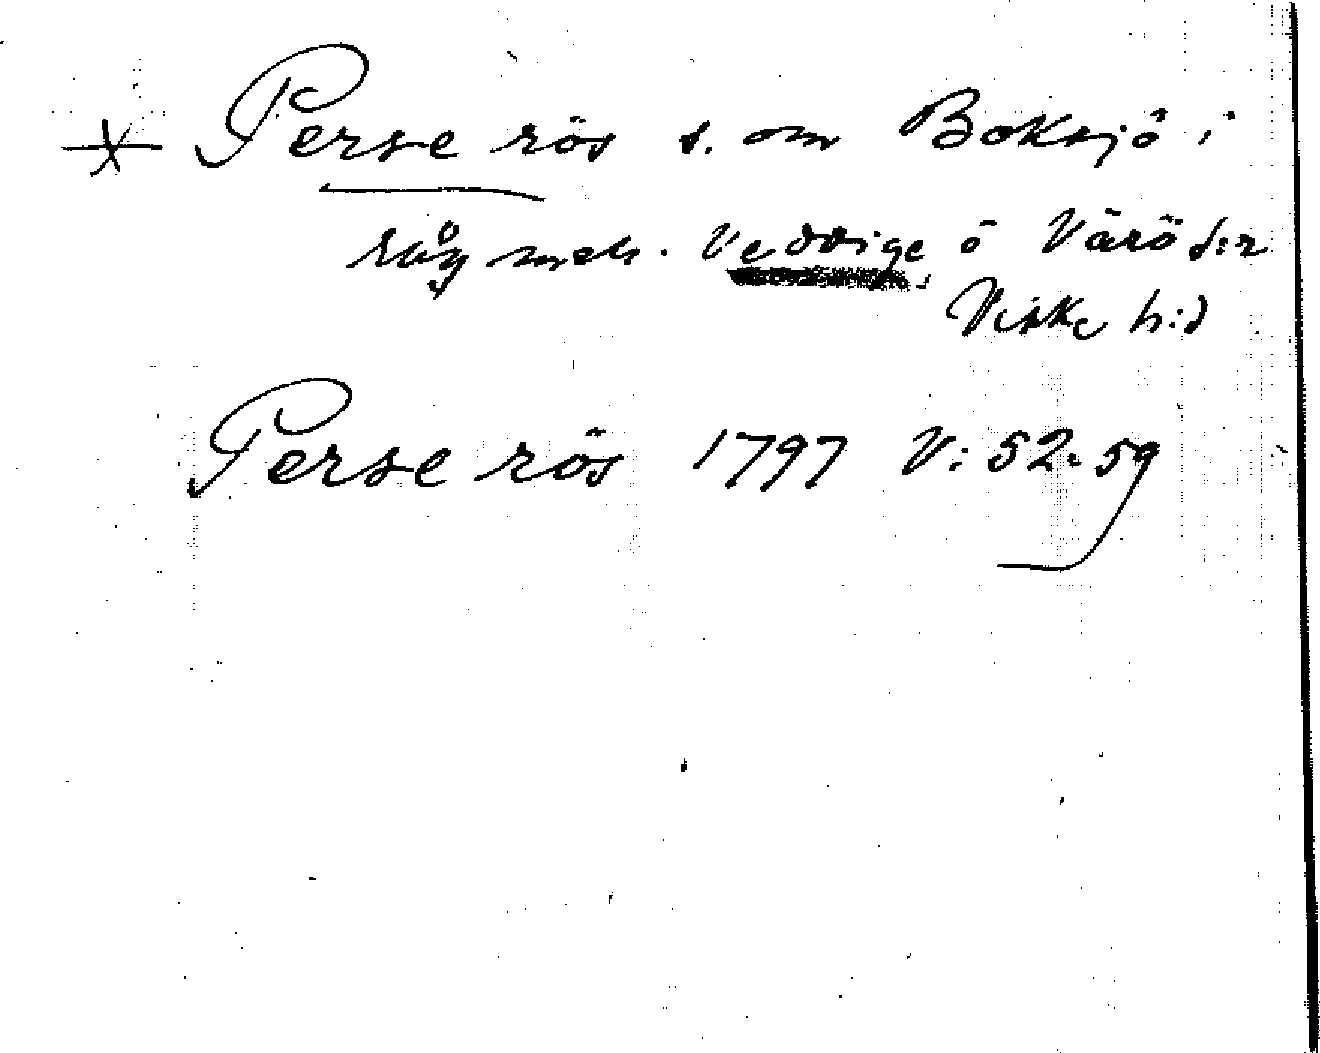 Perse rös s. om Boksjö i
råg mell. Veddige o Värö s:r
Viske h:d
Perse rös 1797 V: 52. 59